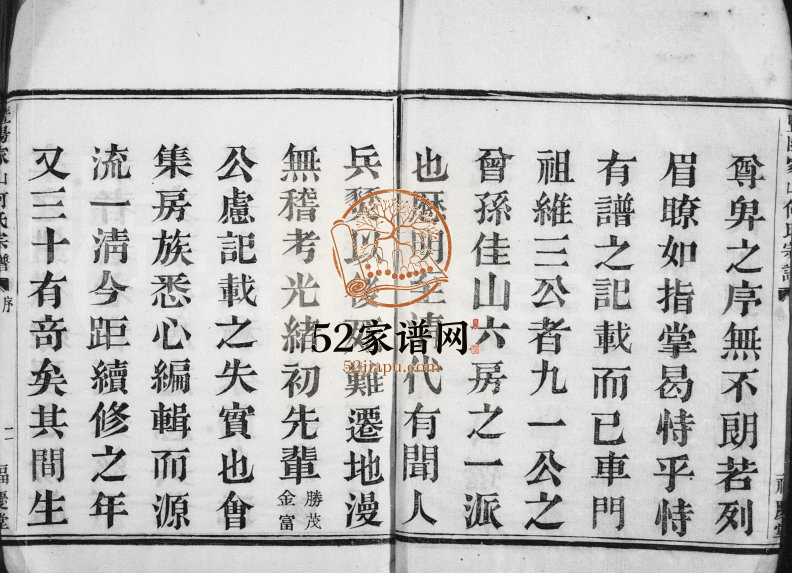 尊卑之序無不朗若列
眉瞭如指掌曷恃乎恃
有譜之記載而已車門
祖維三公者九一公之
曾孫佳山六房之一派
也歷明至清代有聞人
兵燹以後 難遷地漫
無稽考光緒初先輩勝茂金富
公慮記載之失實也會
集房族悉心編輯而源
流一清今距續修之年
又三十有奇矣其間生
家山何氏宗譜 序 二 福慶堂
52家谱网
52jiapu.com